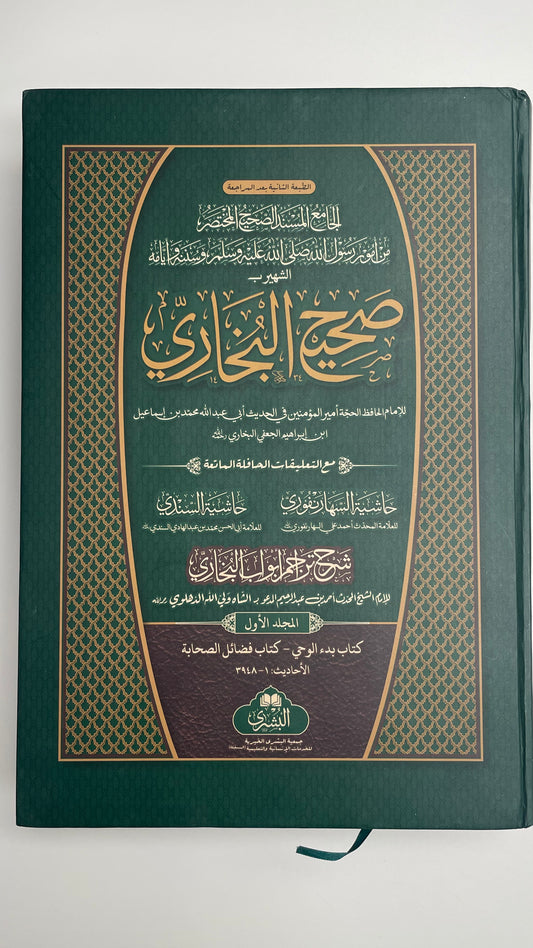 الطبعة الثانية بعد المراجعة
الجامع المسند الصحيح المختصر
من أمور رسول الله صلى الله عليه وسلم وسننه وأيامه
الشهير بـ
صحيح البخاري
للإمام الحافظ الحجة أمير المؤمنين في الحديث أبي عبد الله محمد بن إسماعيل
ابن إبراهيم الجعفي البخاري رحمه الله
مع التعليقات الحافلة الماتعة
حاشية السهارنفوري
للعلامة المحدث أحمد علي السهارنفوري
حاشية السندي
للعلامة أبي الحسن محمد بن عبد الهادي السندي
شرح تراجم أبواب البخاري
للإمام الشيخ المحدث أحمد بن عبد الرحيم المدعو بـ الشاه ولي الله الدهلوي رحمه الله
المجلد الأول
كتاب بدء الوحي - كتاب فضائل الصحابة
الأحاديث: ١-٣٩٤٨
البشرى
جمعية البشرى الخيرية
للخدمات الإنسانية والتعليمية